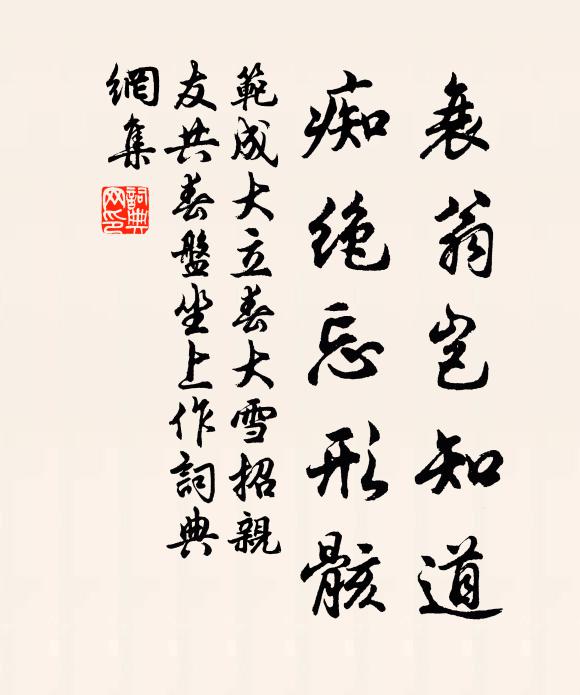 衰翁岂知道
痴绝忘形骸
範成大立春大雪招親
友共春盤坐上作詞典
網集
詞典
网印